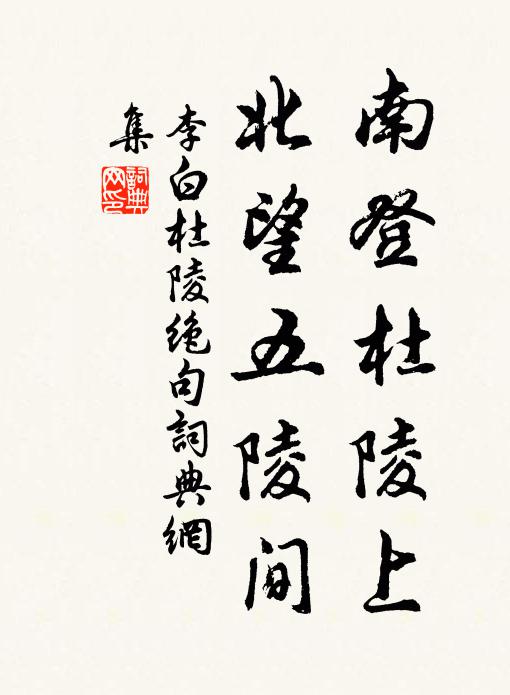 南登杜陵上
北望五陵間
李白杜陵绝句詞典網
集
詞典
网印